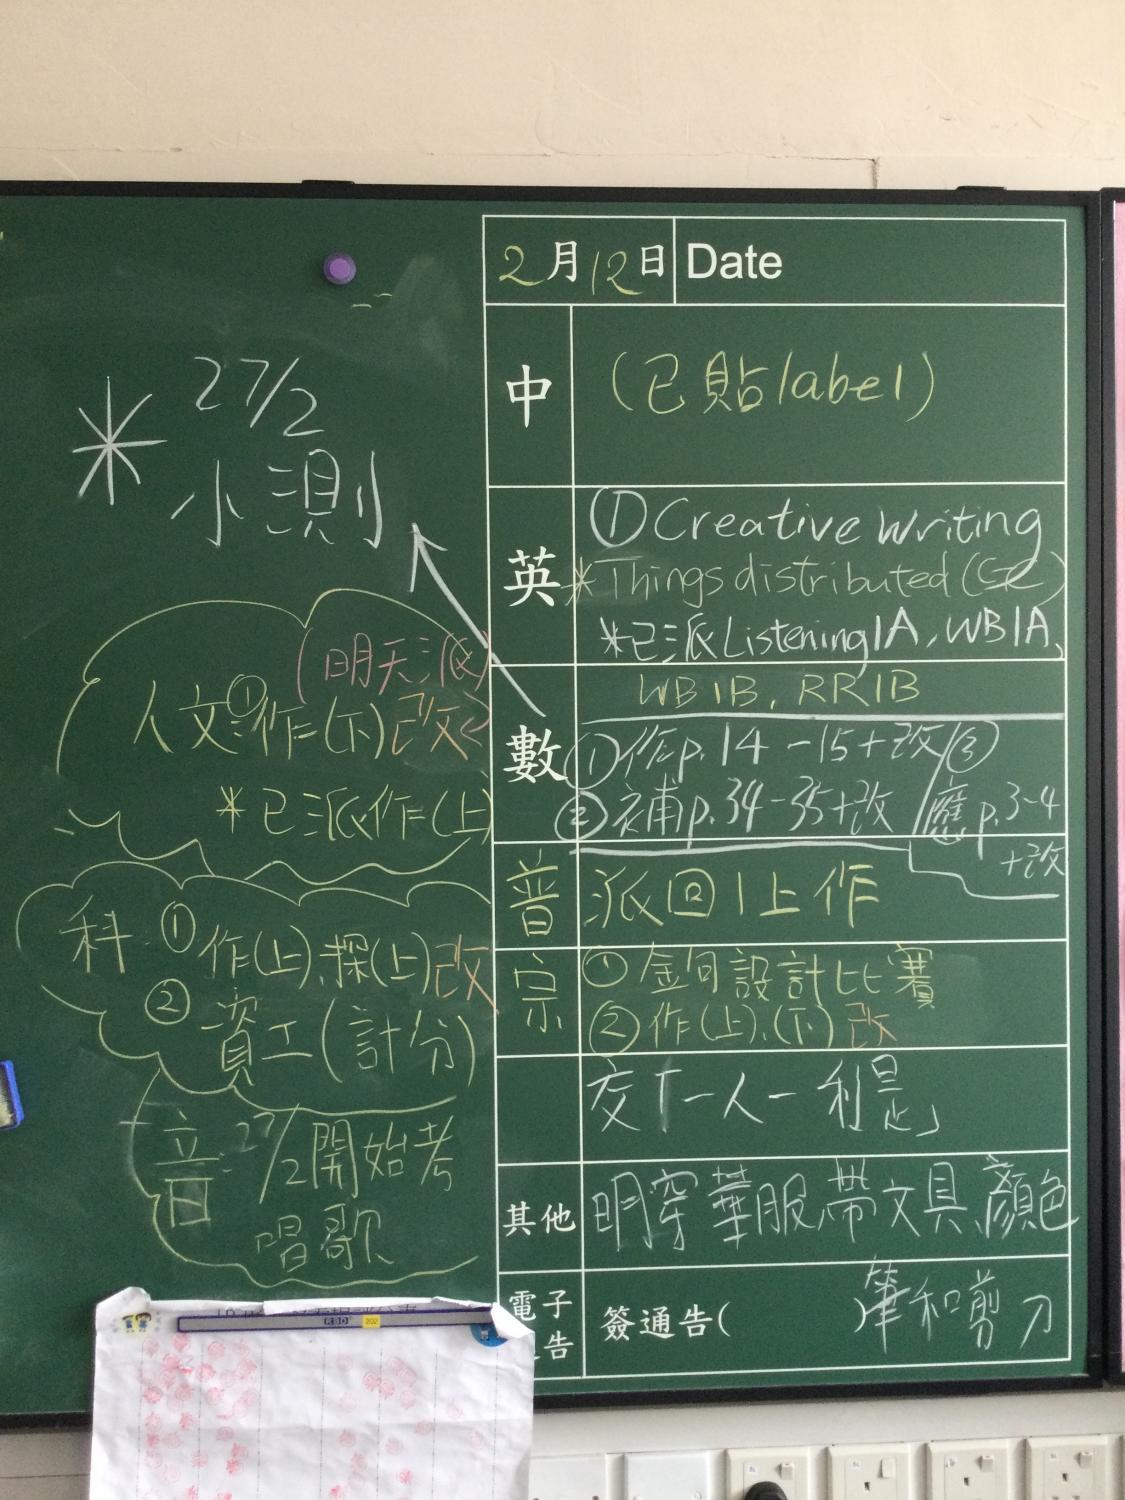 2月12日 Date
中 (已貼label)
英 ①Creative Writing
*Things distributed (GE)
*已派Listening1A, WB1A,
WB1B, RR1B
數 ①作p.14-15+改 ③
②補p.34-35+改 應p.3-4
+改
普 派回1上作
宗 ①金句設計比賽
②作(上).(下)改
交「一人一利是」
其他 明穿華服,帶文具、顏色
筆和剪刀
電子 簽通告( )
告
* 27/2
小測
(明天派)
人文:①作(下)改
*已派作(上)
科:①作(上).探(上)改
②資工(計分)
音:27/2開始考
唱歌